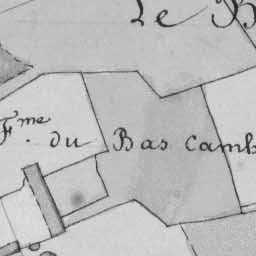 Le B
Fme. du Bas Camb